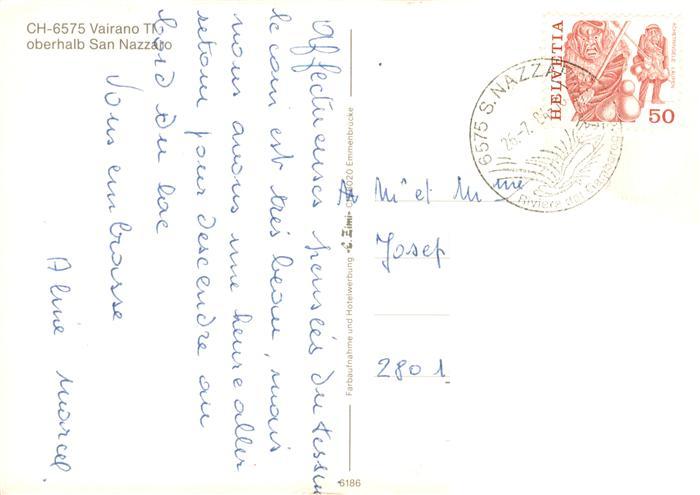 CH-6575 Vairano TI
oberhalb San Nazzaro
Affectueuses pensées du Tessin
le coin est très beau, mais
nous avons une heure aller
retour pour descendre au
bord du lac
Vous embrasse
Aline Marcel.
Farbaufnahme und Hotelwerbung E. Zimi- 6020 Emmenbrücke
6186
HELVETIA
50
6575 S. NAZZARO
26.-7.
Riviera del Gambarogno
Mr et Mme
Josef
2801